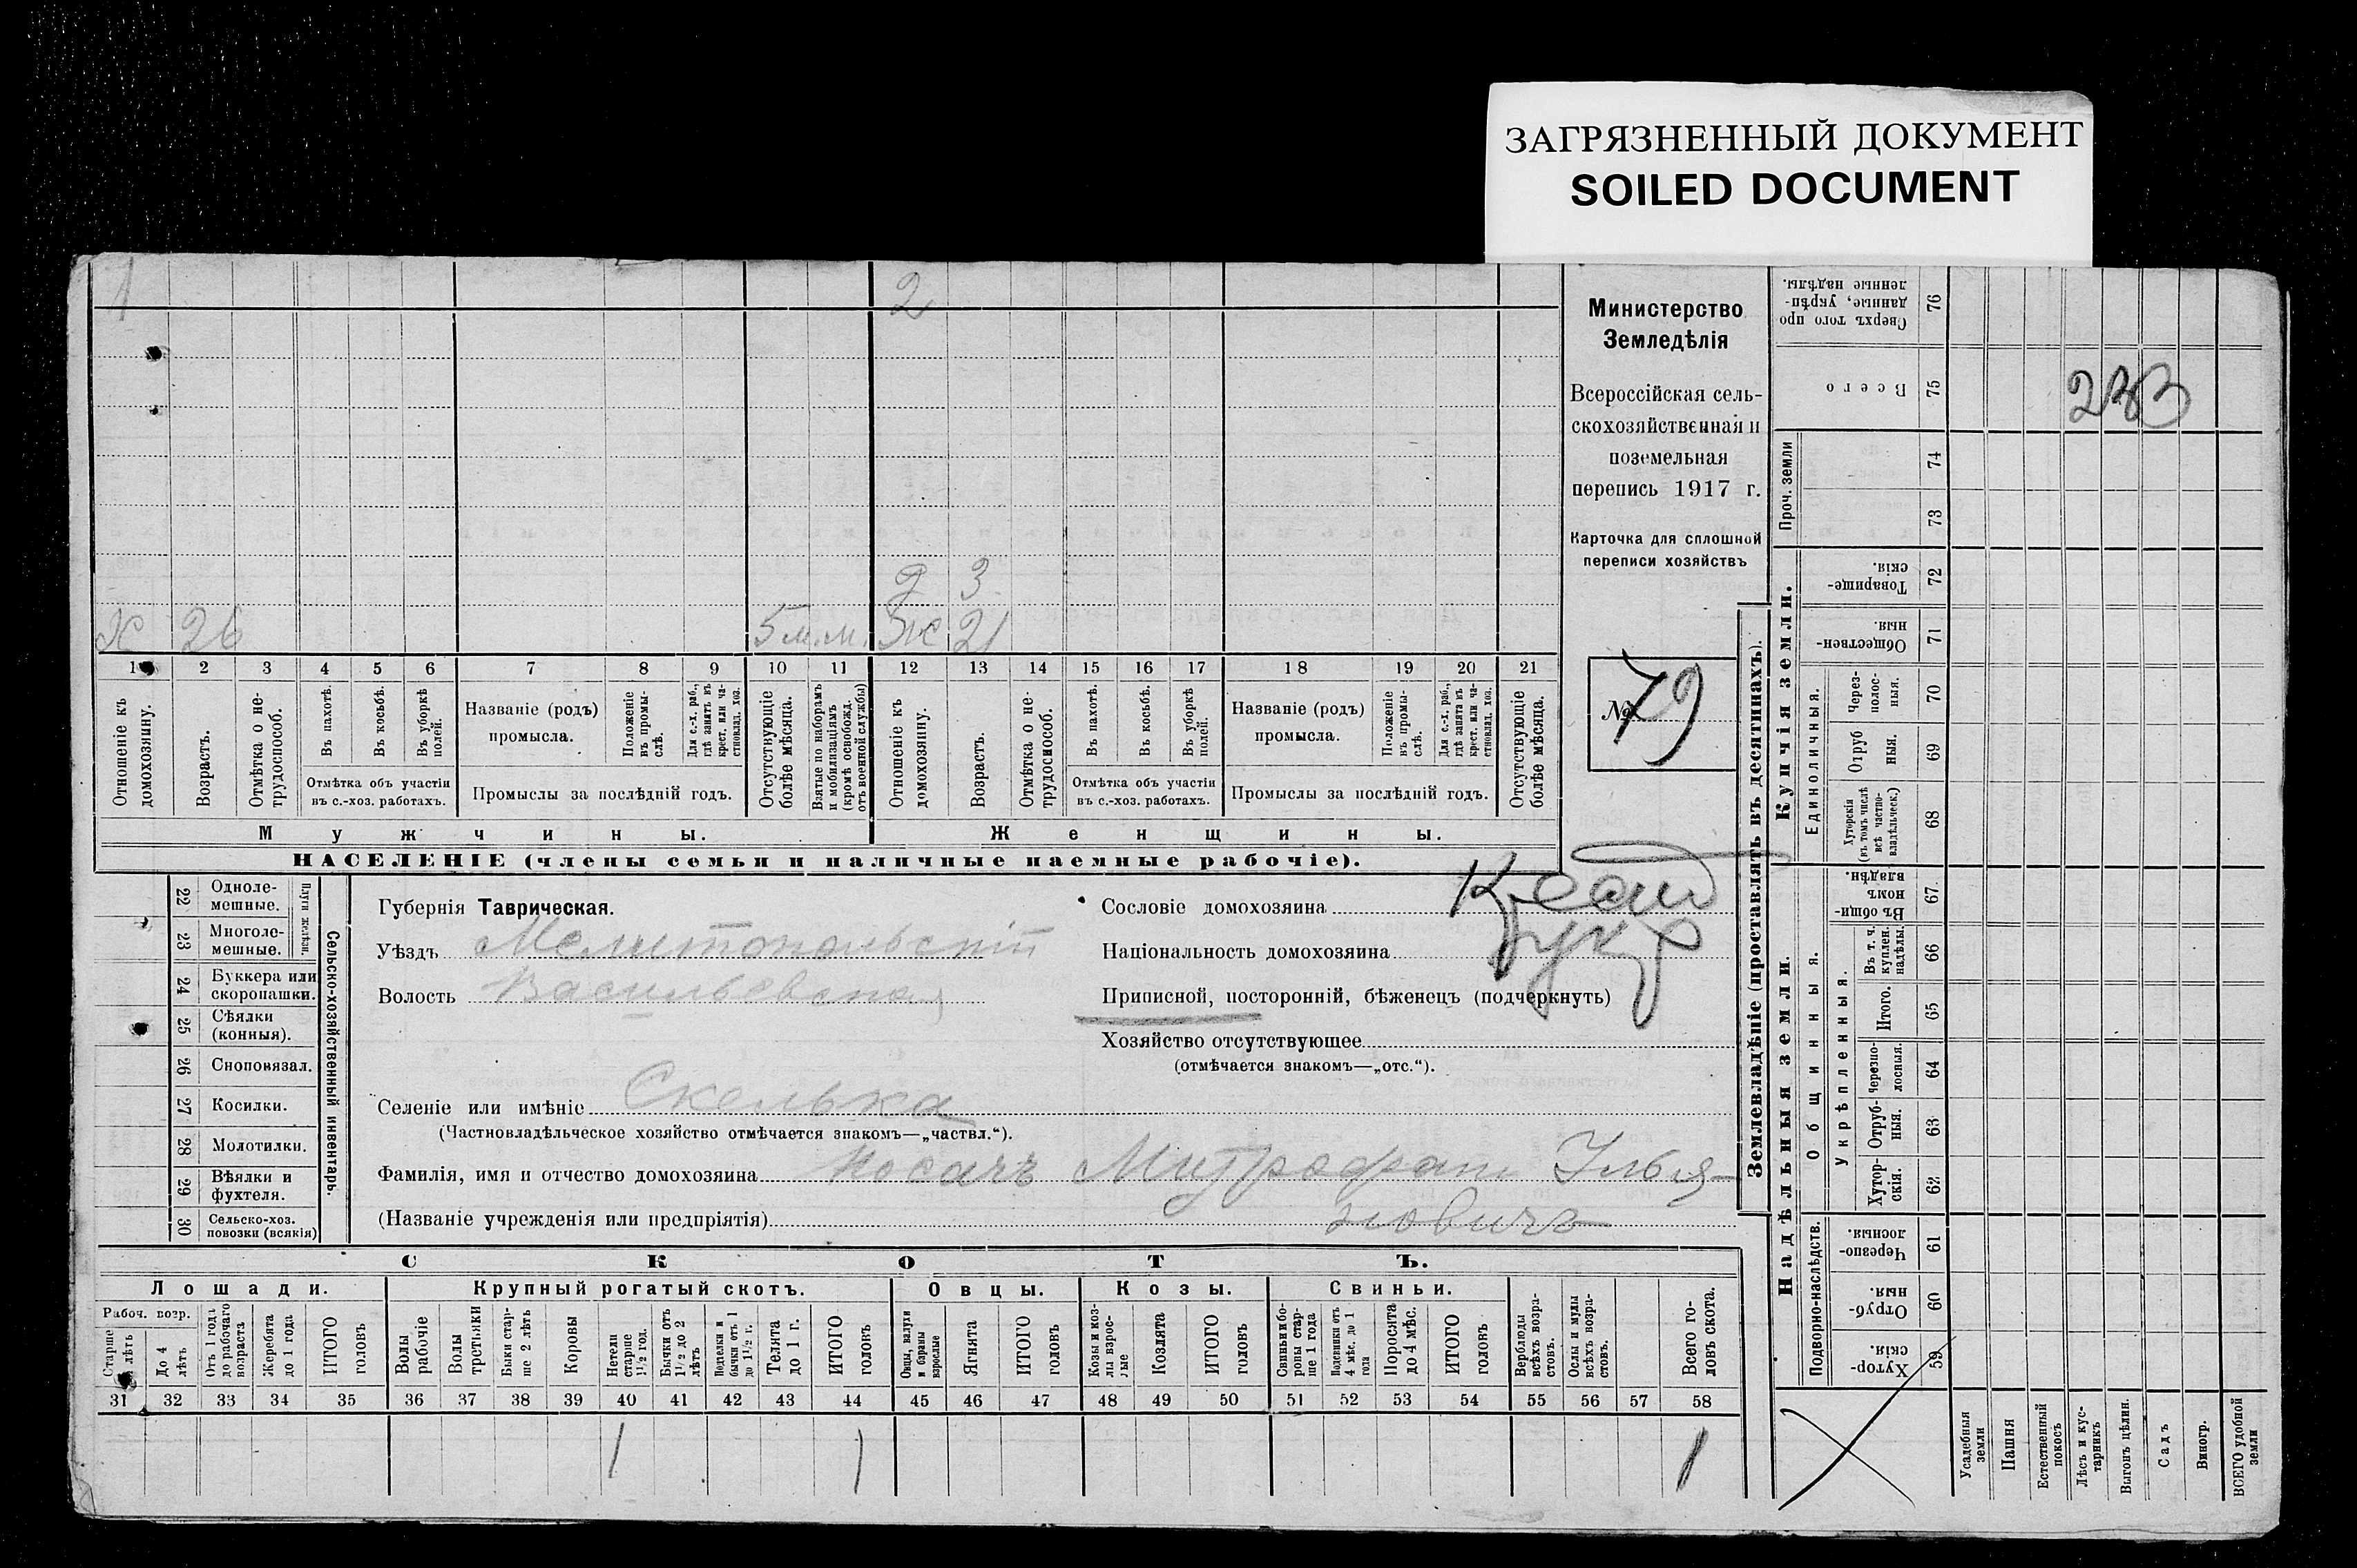 ЗАГРЯЗНЕННЫЙ ДОКУМЕНТ
SOILED DOCUMENT
1 2
2 3
Х 26 5 м.м. Ж 21
1 2 3 4 5 6 7 8 9 10 11 12 13 14 15 16 17 18 19 20 21
Отношеніе къ домохозяину.
Возрастъ.
Отмѣтка о не-трудоспособ.
Въ пахотѣ.
Въ косьбѣ.
Въ уборкѣ полей.
Отмѣтка объ участіи
въ с.-хоз. работахъ.
Названіе (родъ)
промысла.
Положеніе въ промы-слѣ.
Для с.-х. раб., гдѣ занятъ въ крест. или ча-стновлад. хоз.
Промыслы за послѣдній годъ.
Отсутствующіе болѣе мѣсяца.
Взятые по наборамъ и мобилизаціямъ (кромѣ освобожд. отъ военной службы)
Отношеніе къ домохозяину.
Возрастъ.
Отмѣтка о не-трудоспособ.
Въ пахотѣ.
Въ косьбѣ.
Въ уборкѣ полей.
Отмѣтка объ участіи
въ с.-хоз. работахъ.
Названіе (родъ)
промысла.
Положеніе въ промы-слѣ.
Для с.-х. раб., гдѣ занята въ крест. или ча-стновлад. хоз.
Промыслы за послѣдній годъ.
Отсутствующіе болѣе мѣсяца.
Мужчины. Женщины.
НАСЕЛЕНІЕ (члены семьи и наличные наемные рабочіе).
Министерство
Земледѣлія
Всероссійская сель-
скохозяйственная и
поземельная
перепись 1917 г.
Карточка для сплошной
переписи хозяйствъ
№ 79
22 Одноле-мешные.
23 Многоле-мешные.
Плуги желѣзн.
24 Буккера или скоропашки.
25 Сѣялки (конныя).
26 Сноповязал.
27 Косилки.
28 Молотилки.
29 Вѣялки и фухтеля.
30 Сельско-хоз. повозки (всякія)
Сельско-хозяйственный инвентарь.
Губернія Таврическая.
Уѣздъ Мелитопольскій
Волость Васильевская
Сословіе домохозяина Крест
Національность домохозяина Укр
Приписной, посторонній, бѣженецъ (подчеркнуть)
Хозяйство отсутствующее
(отмѣчается знакомъ—„отс.“).
Селеніе или имѣніе Скелька
(Частновладѣльческое хозяйство отмѣчается знакомъ—„частвл.“).
Фамилія, имя и отчество домохозяина Носачъ Митрофанъ Илья-
(Названіе учрежденія или предпріятія) новичъ
СКОТЪ.
Лошади. Крупный рогатый скотъ. Овцы. Козы. Свиньи.
Рабоч. возр.
Старше 4 лѣтъ
До 4 лѣтъ
Отъ 1 года до рабочаго возраста
Жеребята до 1 года
ИТОГО головъ
Волы рабочіе
Волы третьяки
Быки стар-ше 2 лѣтъ
Коровы
Нетели старше 1 1/2 год.
Бычки отъ 1 1/2 до 2 лѣтъ
Подтелки и бычки отъ 1 до 1 1/2 г.
Телята до 1 г.
ИТОГО головъ
Овцы, валухи и бараны взрослые
Ягнята
ИТОГО головъ
Козы и коз-лы взрос-лые
Козлята
ИТОГО головъ
Свиньи и бо-ровы стар-ше 1 года
Подсвинки отъ 4 мѣс. до 1 года
Поросята до 4 мѣс.
ИТОГО головъ
Верблюды всѣхъ возра-стовъ.
Ослы и мулы всѣхъ возра-стовъ.
Всего го-ловъ скота.
31 32 33 34 35 36 37 38 39 40 41 42 43 44 45 46 47 48 49 50 51 52 53 54 55 56 57 58
1 1 1
Землевладѣніе (проставлять въ десятинахъ).
Надѣльныя земли. Купчія земли.
Проч. земли
Подворно-наслѣдств.
Общинныя.
Укрѣпленныя.
Единоличныя.
Сверхъ того про данные, укрѣп-ленные надѣлы. 76
Всего 75
74
73
Товарище-скія. 72
Обществен-ныя. 71
Через-полос-ныя. 70
Отруб ныя. 69
Хуторскія (въ томъ числѣ всѣ частно-владѣльческ.) 68
Въ общи-номъ владѣн. 67
Въ т. ч. куплен. надѣлы. 66
Итого. 65
Черезпо-лосныя. 64
Отруб-ныя. 63
Хутор-скія. 62
Черезпо-лосныя. 61
Отруб-ныя. 60
Хутор-скія. 59
Усадебныя земли
Пашня
Естественный покосъ
Лѣсъ и кус-тарникъ
Выгонъ цѣлин.
Садъ
Виногр.
ВСЕГО удобной земли